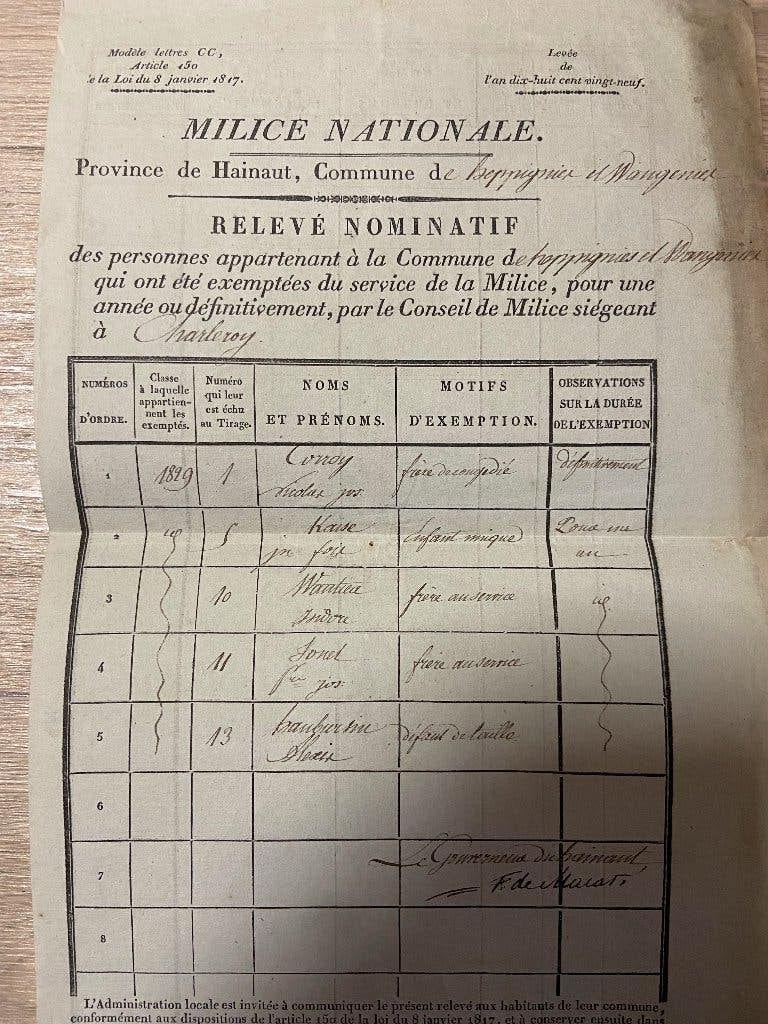 Modèle lettres CC,
Article 150
de la Loi du 8 janvier 1817.
Levée
de
l'an dix-huit cent vingt-neuf.
MILICE NATIONALE.
Province de Hainaut, Commune de heppignies et Wangenies
RELEVÉ NOMINATIF
des personnes appartenant à la Commune de heppignies et Wangenies
qui ont été exemptées du service de la Milice, pour une
année ou définitivement, par le Conseil de Milice siégeant
à Charleroy.
NUMÉROS D'ORDRE.
Classe à laquelle appartiennent les exemptés.
Numéro qui leur est échu au Tirage.
NOMS ET PRÉNOMS.
MOTIFS D'EXEMPTION.
OBSERVATIONS SUR LA DURÉE DE L'EXEMPTION
1 1829 1 Corroy Nicolas jos frère de congédié définitivement
2 id 5 jn enfant unique Pour un an
3 10 frère au service id
4 11 Jonet jos frère au service
5 13 Alexis défaut de taille
6
7
Le Gouverneur du hainaut,
F. de
8
L'Administration locale est invitée à communiquer le présent relevé aux habitants de leur commune,
conformément aux dispositions de l'article 150 de la loi du 8 janvier 1817, et à conserver ensuite dans